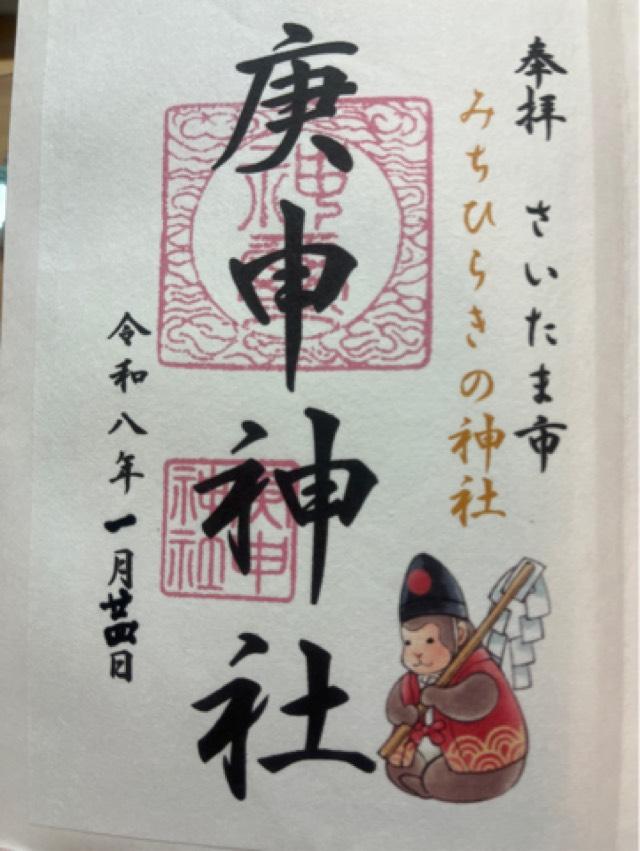 奉拝 さいたま市
みちひらきの神社
庚申神社
神璽
庚申
神社
令和八年一月廿四日